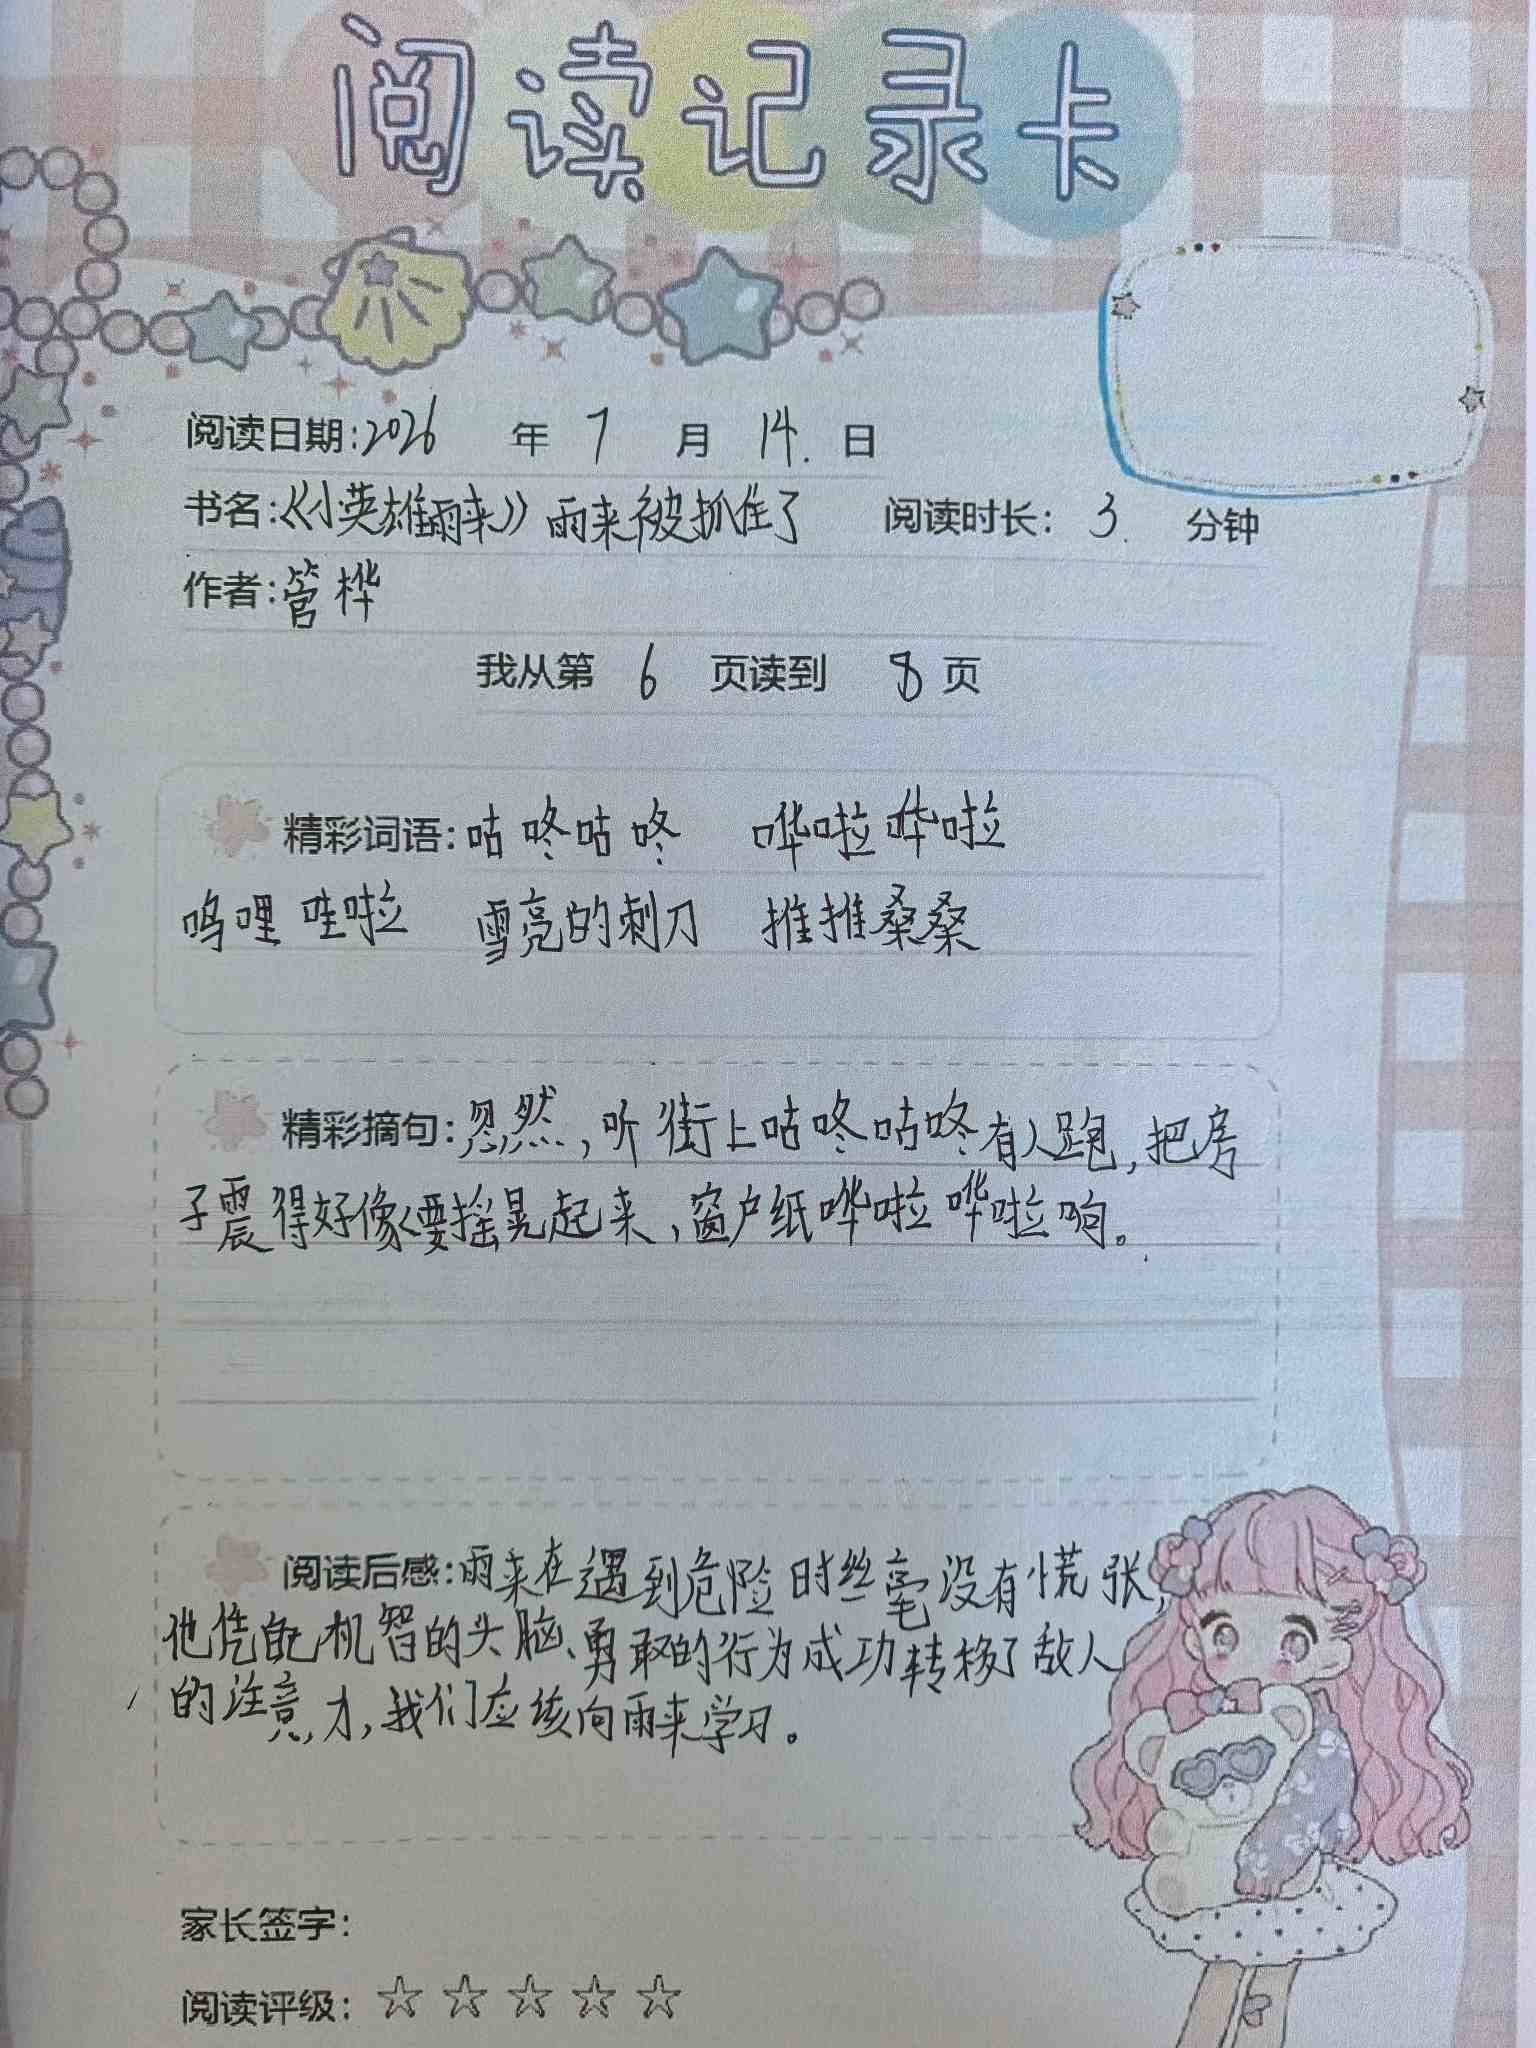 阅读记录卡
阅读日期:2026 年 7 月 14. 日
书名:《小英雄雨来》雨来被抓住了 阅读时长: 3. 分钟
作者:管桦
我从第 6 页读到 8 页
精彩词语:咕咚咕咚 哗啦哗啦
呜哩哇啦 雪亮的刺刀 推推桑桑
精彩摘句:忽然,听街上咕咚咕咚有人跑,把房
子震得好像要摇晃起来,窗户纸哗啦哗啦响。
阅读后感:雨来在遇到危险时丝毫没有慌张,
他凭自己机智的头脑、勇敢的行为成功转移了敌人
的注意力,我们应该向雨来学习。
家长签字:
阅读评级:☆☆☆☆☆